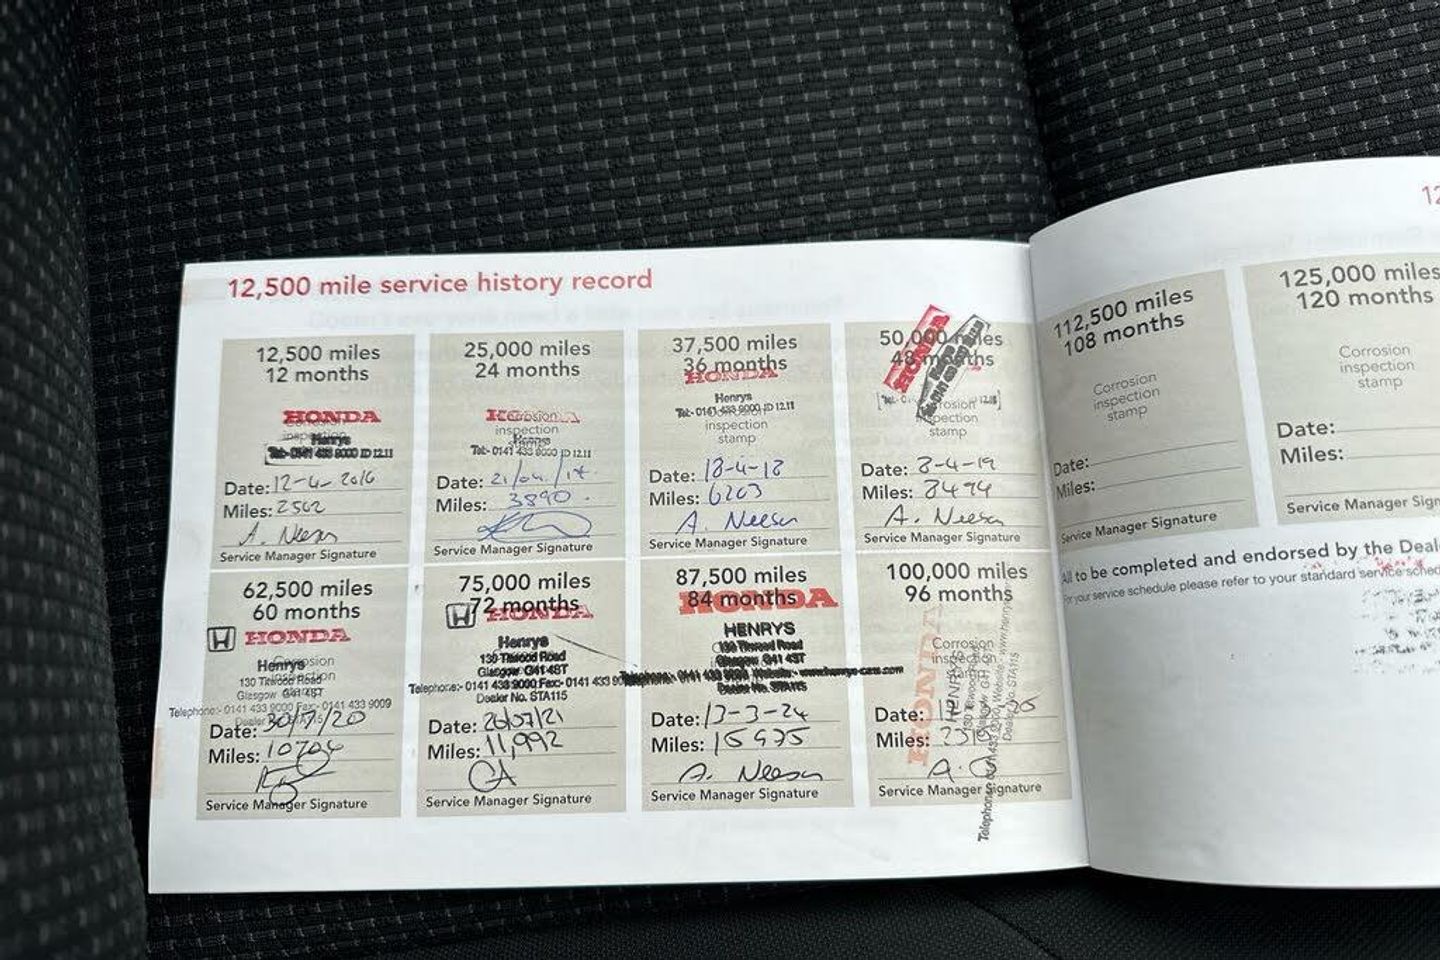 12,500 mile service history record
12,500 miles
12 months
HONDA
Henrys
Tel:- 0141 433 9000 ID 12.11
Date: 12-4-2016
Miles: 2502
A. Neeson
Service Manager Signature
25,000 miles
24 months
Corrosion
inspection
Henrys
Tel:- 0141 433 9000 ID 12.11
Date: 21/04/17
Miles: 3890
Service Manager Signature
37,500 miles
36 months
HONDA
Henrys
Tel:- 0141 433 9000 ID 12.11
inspection
stamp
Date: 18-4-18
Miles: 6203
A. Neeson
Service Manager Signature
50,000 miles
48 months
HONDA
stamp
Date: 8-4-19
Miles: 8494
A. Neeson
Service Manager Signature
62,500 miles
60 months
HONDA
Henrys
130 Titwood Road
Glasgow G41 4ST
Telephone:- 0141 433 9000 Fax:- 0141 433 9009
Date: 30/7/20
Miles: 10704
Service Manager Signature
75,000 miles
72 months
HONDA
Henrys
130 Titwood Road
Glasgow G41 4ST
Telephone:- 0141 433 9000 Fax:- 0141 433
Dealer No. STA115
Date: 26/07/21
Miles: 11,992
CA
Service Manager Signature
87,500 miles
84 months
HONDA
HENRYS
130 Titwood Road
Glasgow G41 4ST
Dealer No. STA115
Date: 13-3-24
Miles: 15975
A. Neeson
Service Manager Signature
100,000 miles
96 months
Corrosion
HONDA
Date:
Miles:
Service Manager Signature
112,500 miles
108 months
Corrosion
inspection
stamp
Date:
Miles:
Service Manager Signature
125,000 miles
120 months
Corrosion
inspection
stamp
Date:
Miles:
Service Manager
All to be completed and endorsed by the
For your service schedule please refer to your standard service